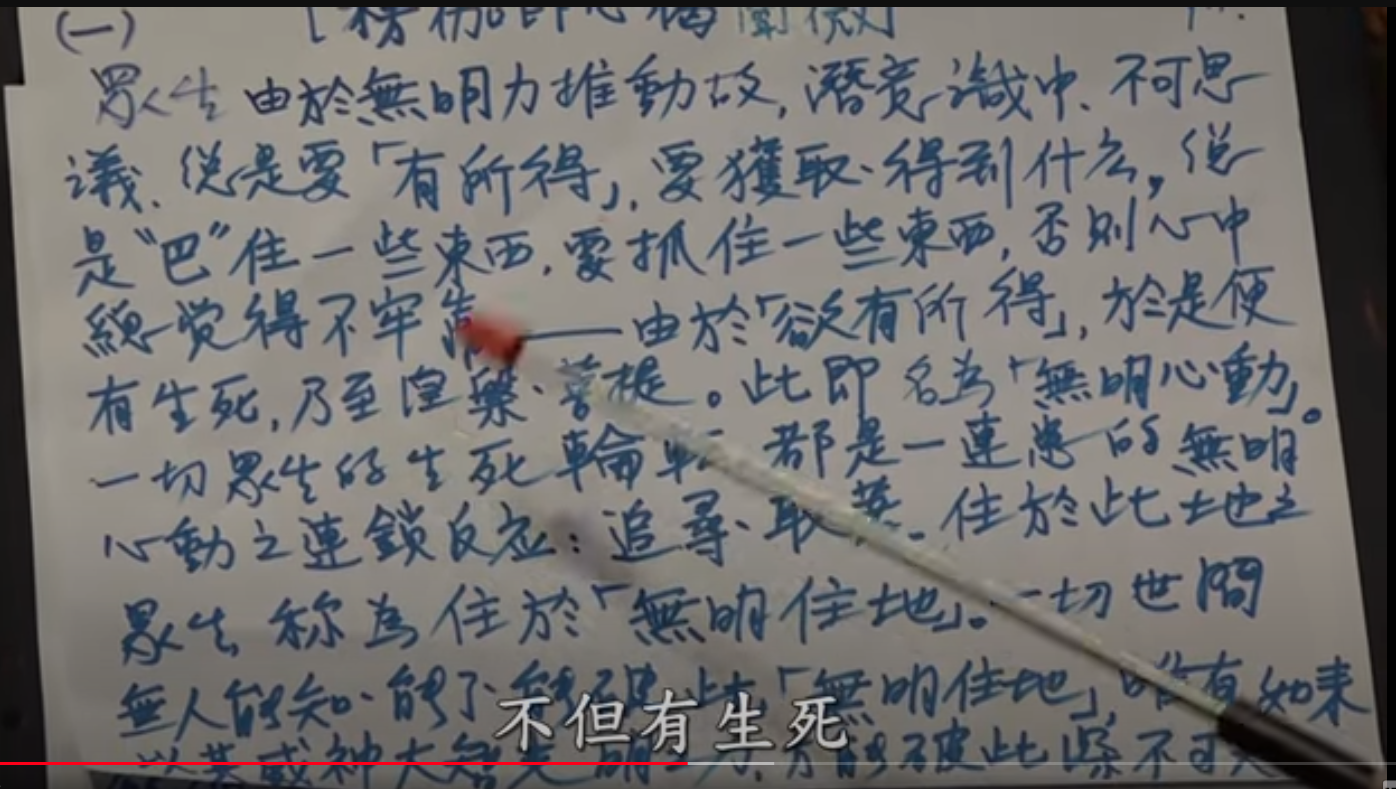 (一) 「楞伽即心
眾生由於無明力推動故,潛意識中、不可思
議、總是要「有所得」,要獲取、得到什么,總
是"巴"住一些東西,要抓住一些東西,否則心中
總覚得不牢靠——由於「欲有所得」,於是便
有生死,乃至涅槃、菩提。此即名為「無明心動」。
一切眾生的生死輪転 都是一連患的無明
心動之連鎖反应:追尋、取著。住於此土地之
眾生称為住於「無明住地」。一切世間
無人能知、能了、能破此「無明住地」,唯有如來
以其威神大智光明之力,方能破此際不可
不但有生死